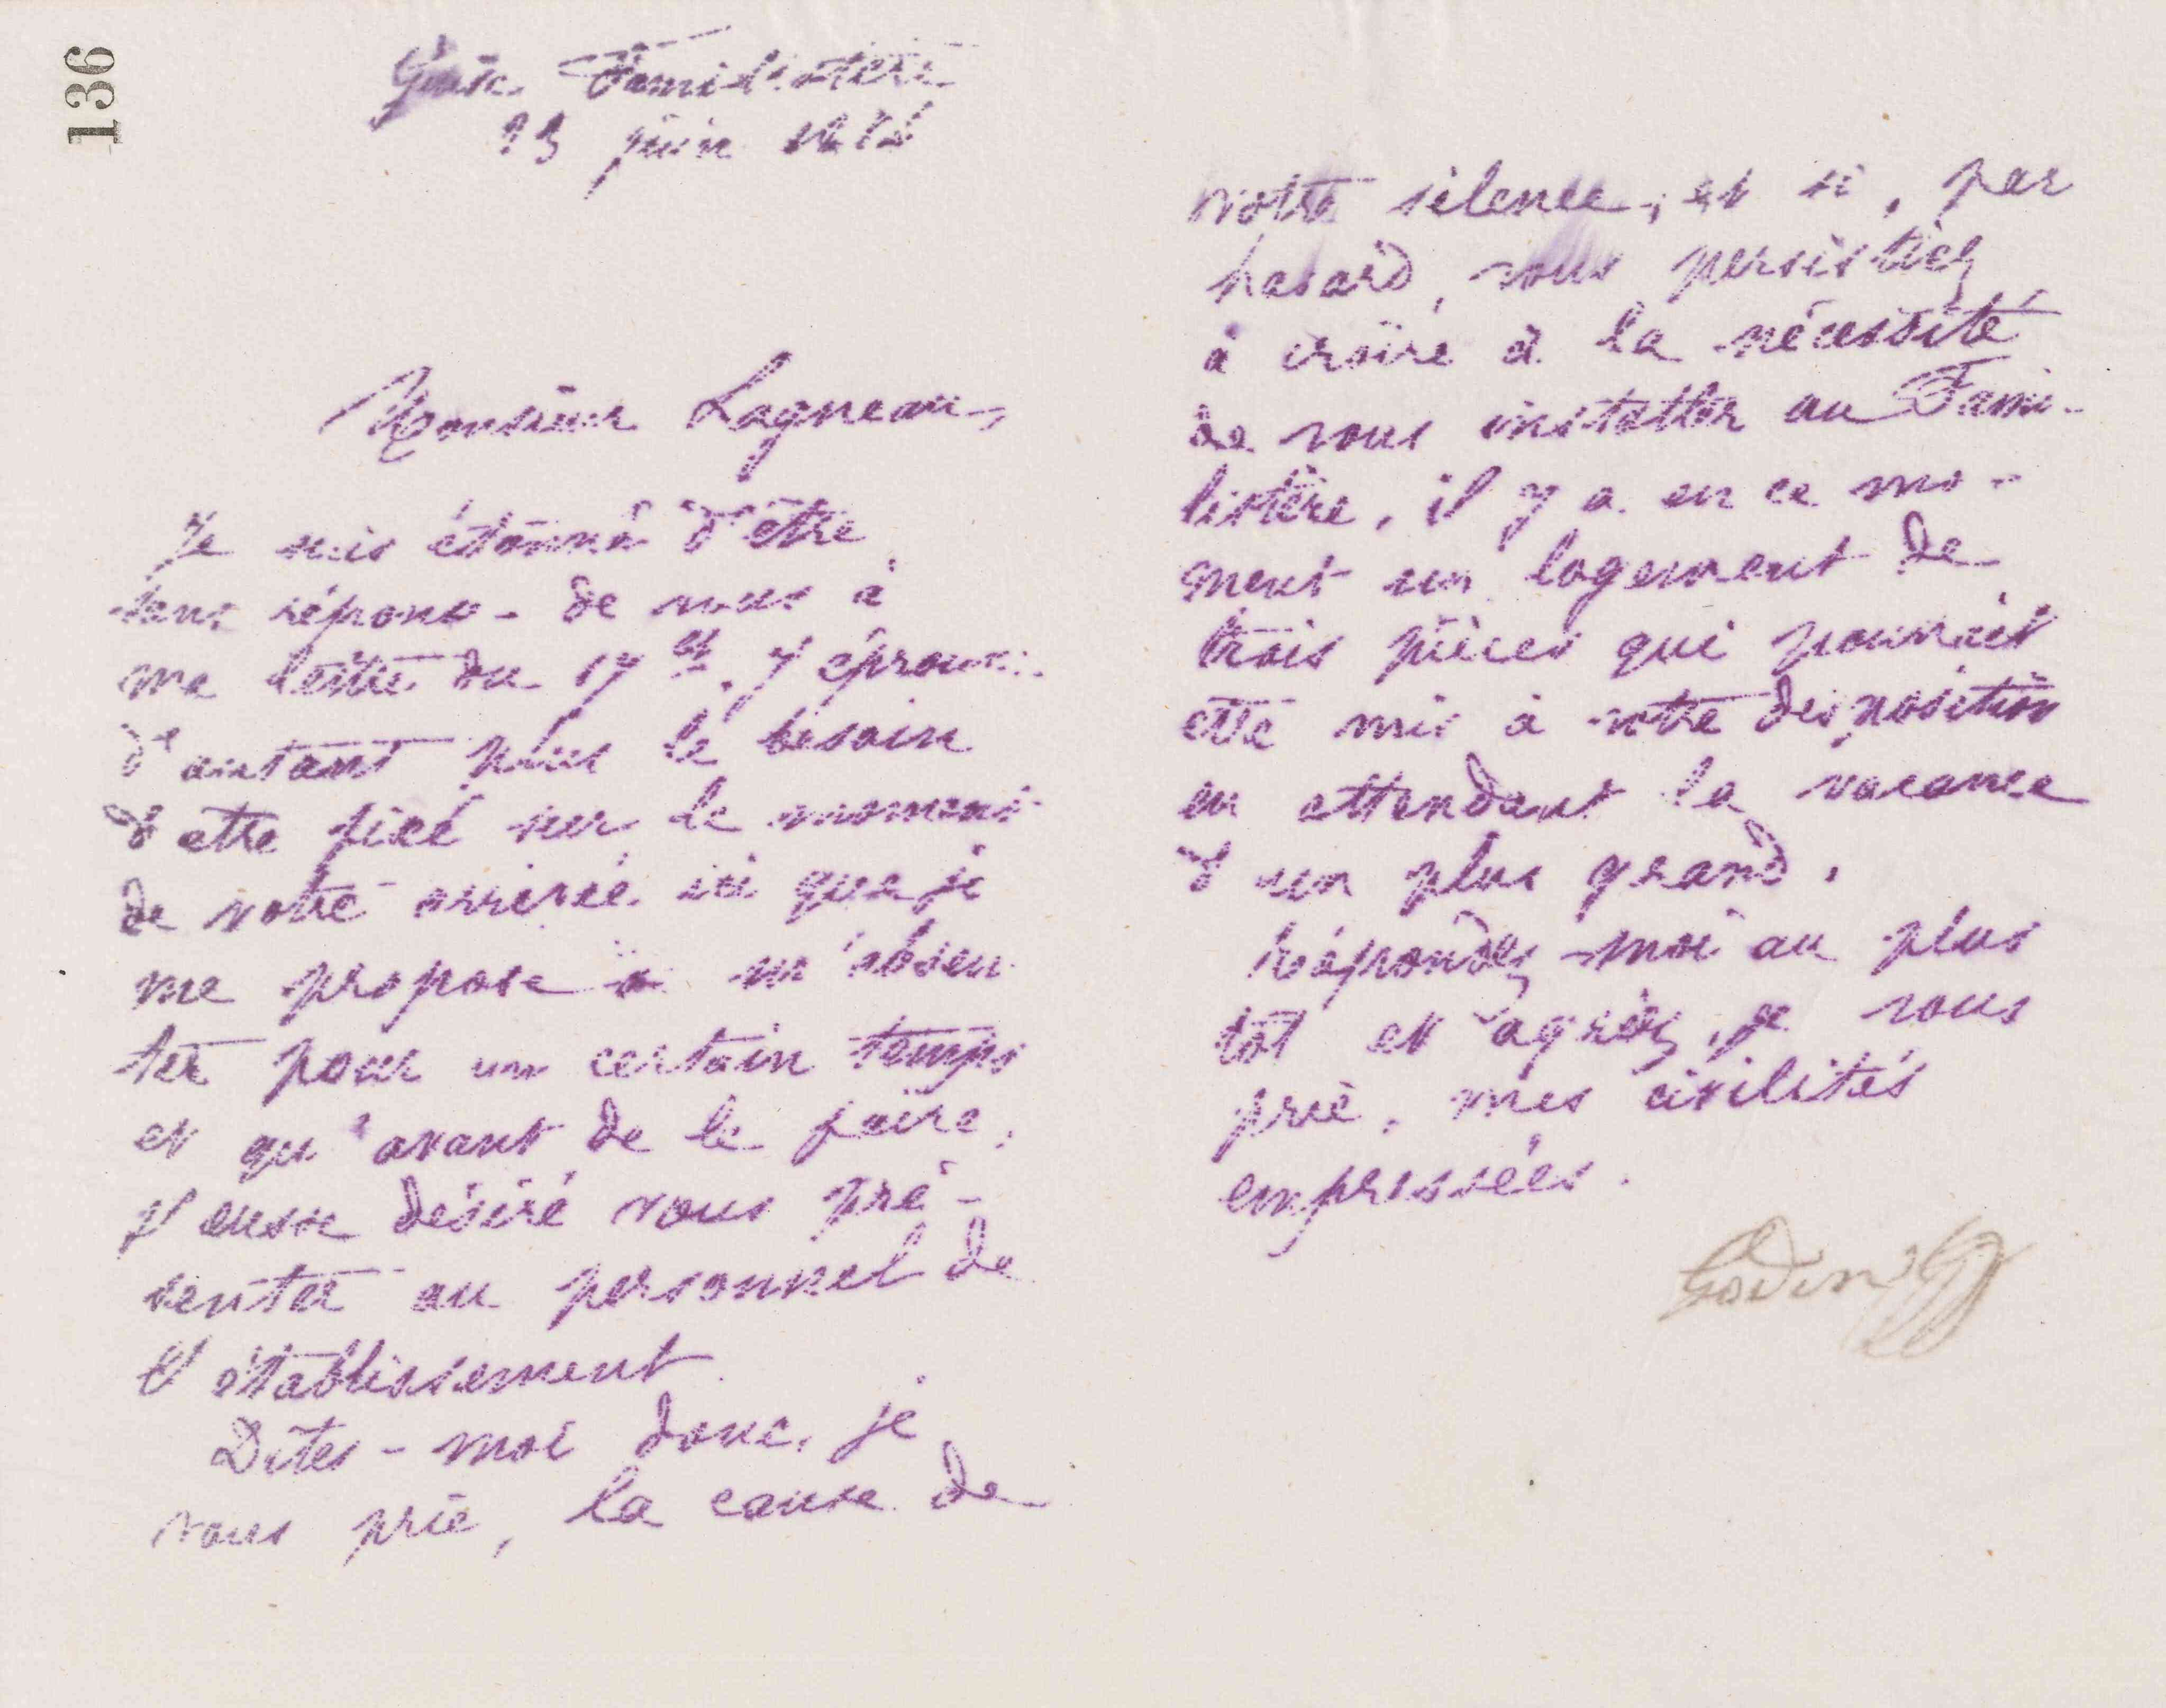 136
Guise Familistère
23 juin 1878
Monsieur Lagneau,
Je suis étonné d'être
sans réponse de vous à
ma lettre du 17 ct. J'éprouve
d'autant plus le besoin
d'être fixé sur le moment
de votre arrivée ici que je
me propose à m'absen
ter pour un certain temps
et qu'avant de le faire,
j'eusse désiré vous pré-
senter au personnel de
l'établissement.
Dites-moi donc, je
vous prie, la cause de
votre silence; et si, par
hasard, vous persistiez
à croire à la nécessité
de vous installer au Fami-
listère, il y a en ce mo-
ment un logement de
trois pièces qui pourrait
être mis à votre disposition
en attendant la vacance
d'un plus grand.
Répondez-moi au plus
tôt et agréez, je vous
prie, mes civilités
empressées.
Godin